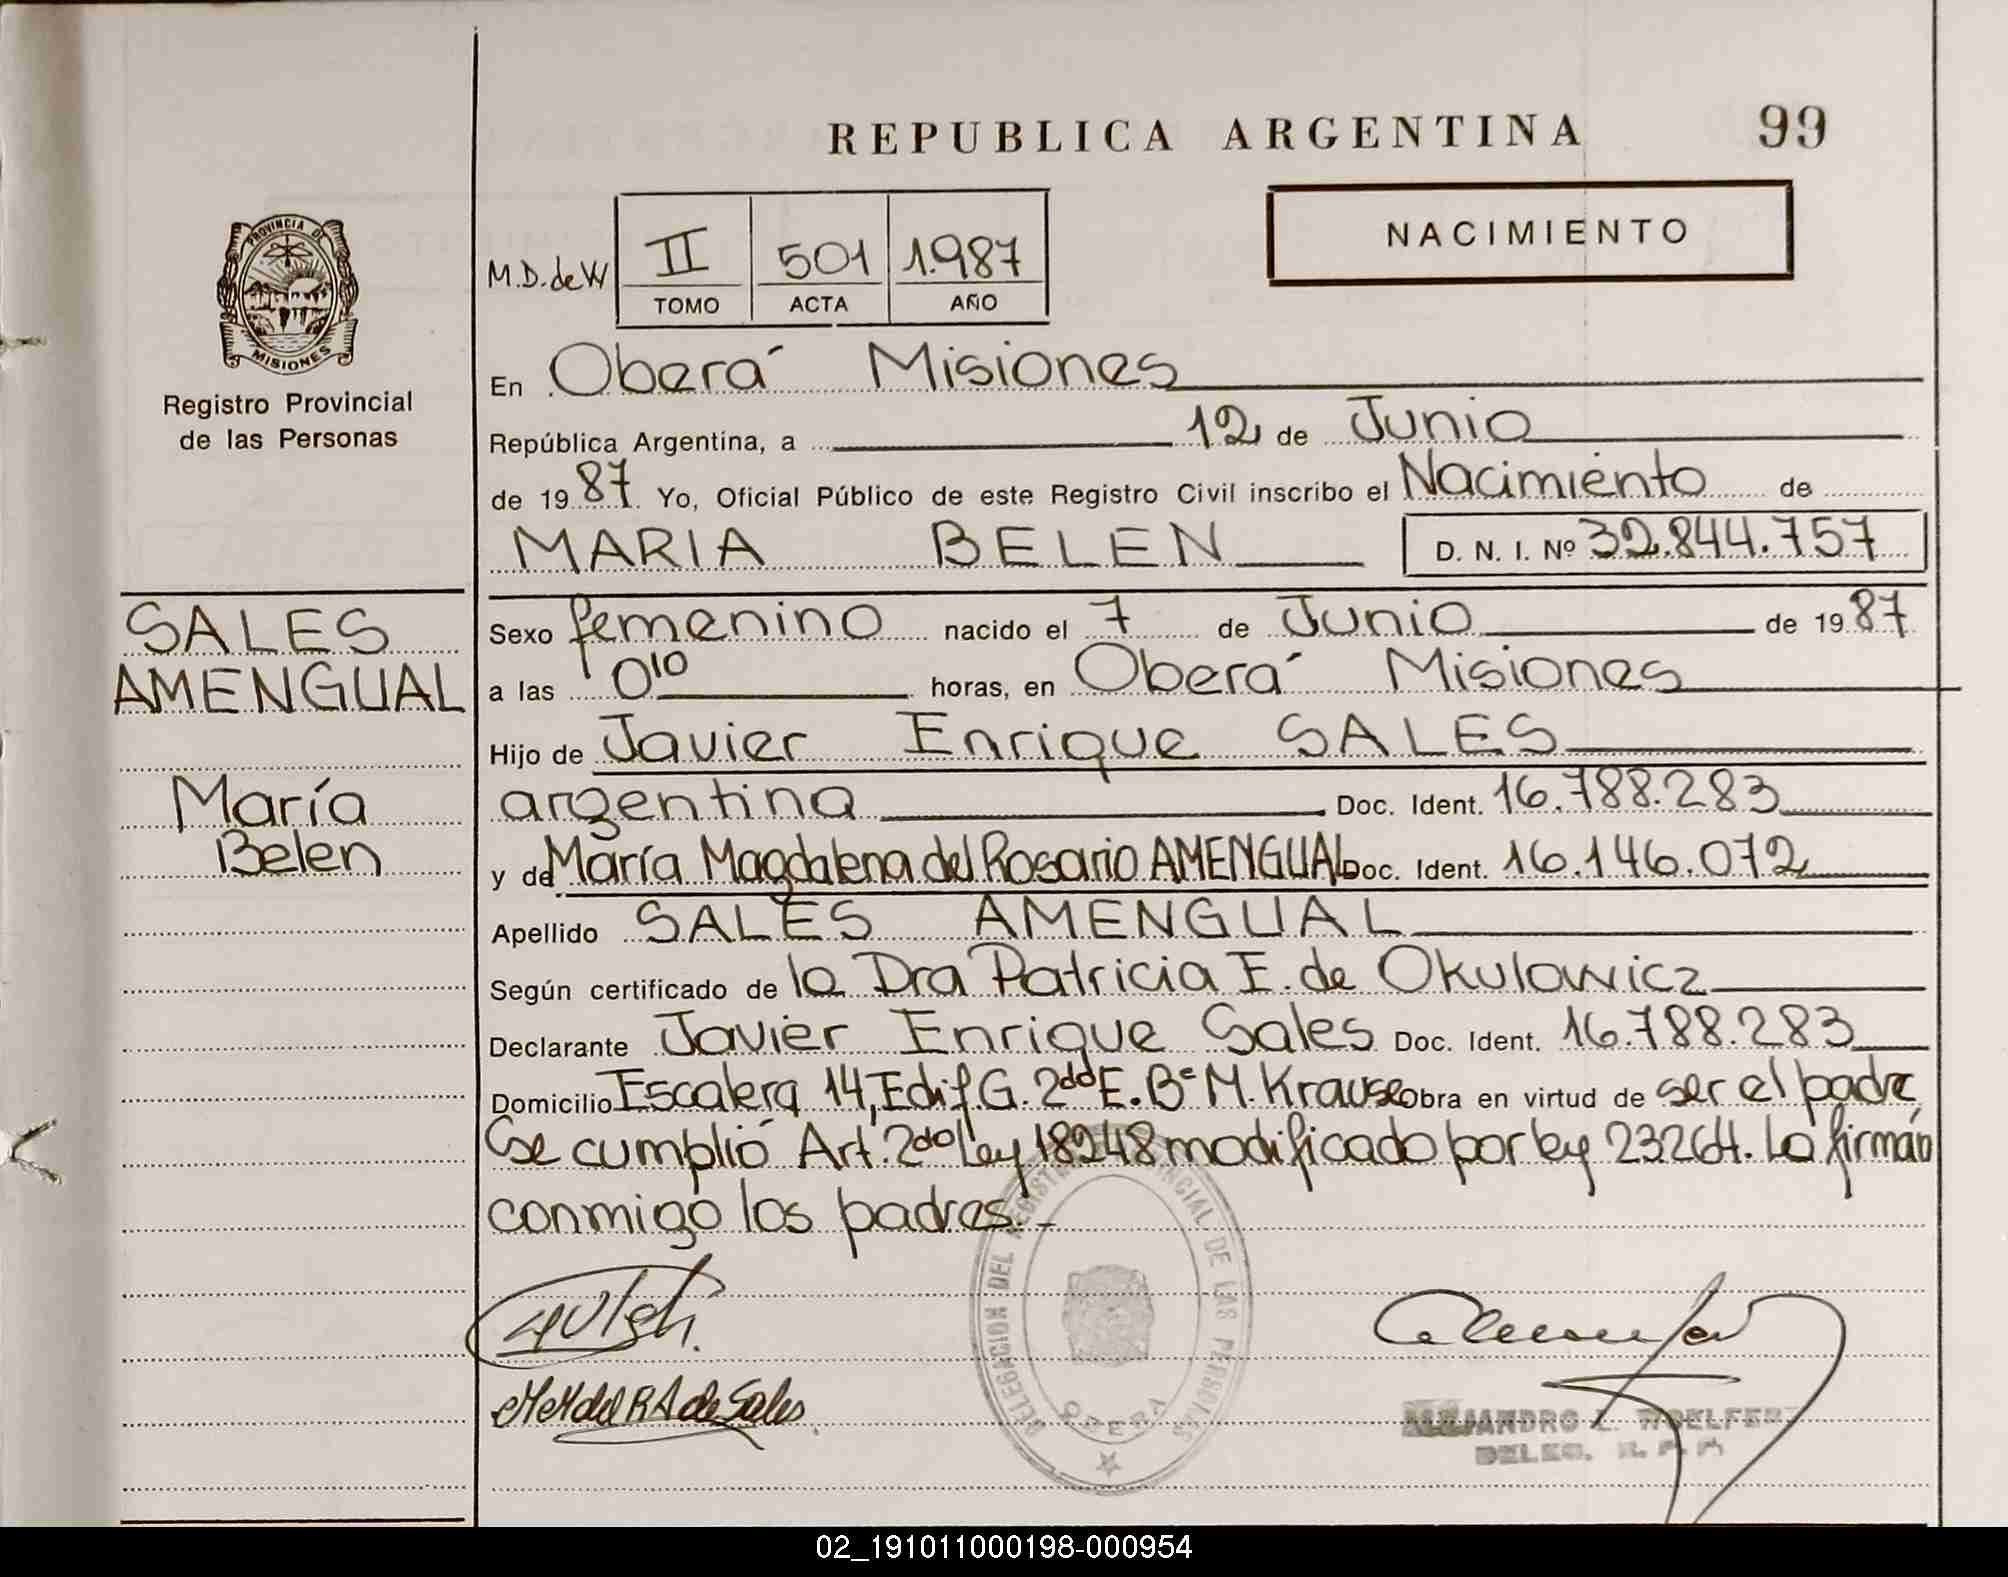 REPUBLICA ARGENTINA 99
NACIMIENTO
M.D. de W II 501 1.987
TOMO ACTA AÑO
PROVINCIA DE
MISIONES
Registro Provincial
de las Personas
En Oberá Misiones
República Argentina, a 12 de Junio
de 1987. Yo, Oficial Público de este Registro Civil inscribo el Nacimiento de
MARIA BELEN D. N. I. Nº 32.844.757
SALES
AMENGUAL
María
Belen
Sexo femenino nacido el 7 de Junio de 1987
a las 0¹⁰ horas, en Oberá Misiones
Hijo de Javier Enrique SALES
argentina Doc. Ident. 16.788.283
y de María Magdalena del Rosario AMENGUAL Doc. Ident. 16.146.072
Apellido SALES AMENGUAL
Según certificado de la Dra Patricia E. de Okulowicz
Declarante Javier Enrique Sales Doc. Ident. 16.788.283
Domicilio Escalera 14, Edif. G. 2do E. Bº M. Krause obra en virtud de ser el padre
Se cumplió Art. 2do Ley 18248 modificado por ley 23264. La firman
conmigo los padres.-
DELEGACION DEL REGISTRO PROVINCIAL DE LAS PERSONAS
OBERA
M M del R A de Sales
ALEJANDRO L. WOELFERT
DELEG. R. P. P.
02_191011000198-000954